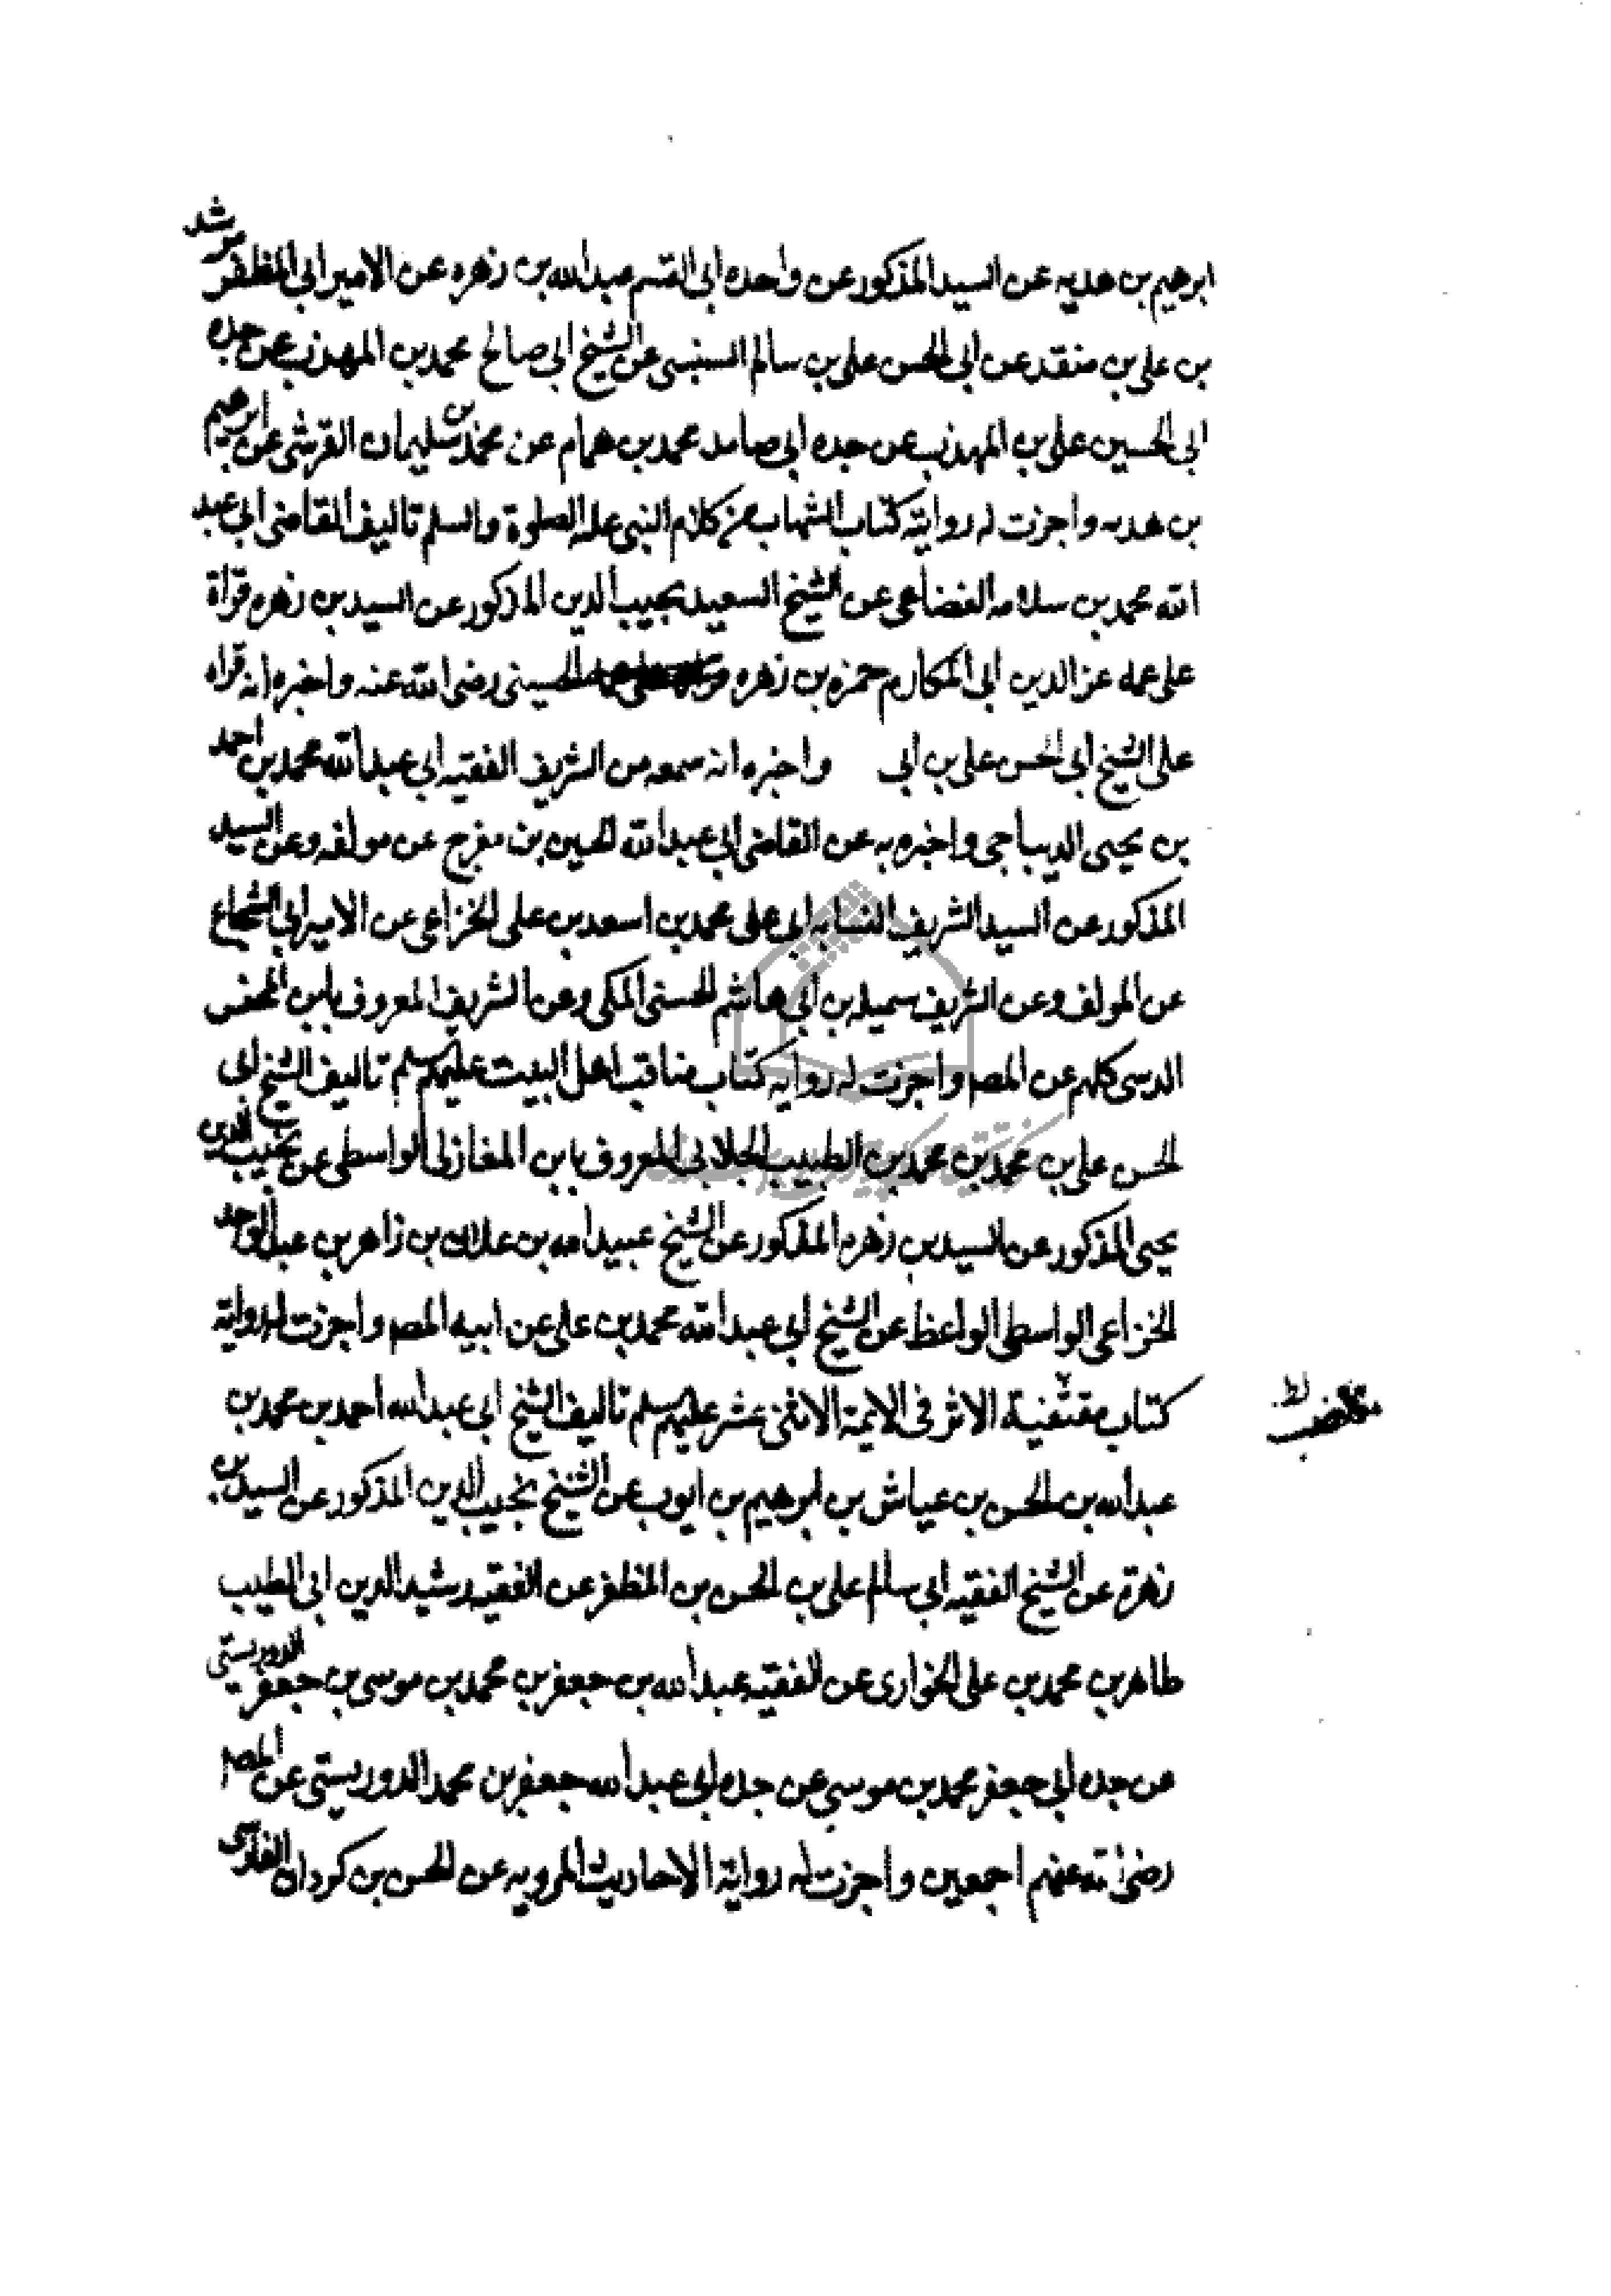 ابرهيم بن هدبه عن السيد المذكور عن واحده ابى القسم عبدالله بن زهره عن الامير ابى المظفر مرشد
بن على بن منقد عن ابى الحسن على بن سالم السنبسى عن الشيخ ابى صالح محمد بن المهذب عن جده
ابى الحسين على بن المهذب عن جده ابى حامد محمد بن همام عن محمد بن سليمان القرشى عن ابرهيم
بن هدبه واجزت له رواية كتاب الشهاب من كلام النبى عليه الصلوة والسلم تاليف القاضى ابى عبد
الله محمد بن سلامه القضاعى عن الشيخ السعيد نجيب الدين المذكور عن السيد بن زهره قراة
على عمه عز الدين ابى المكارم حمزه بن زهره الحسينى رضى الله عنه واخبره انه قراه
على الشيخ ابى الحسن على بن ابى واخبره انه سمعه من الشريف الفقيه ابى عبدالله محمد بن احمد
بن يحيى الديباجى واخبره به عن القاضى ابى عبدالله الحسين بن مفرج عن مولفه وعن السيد
المذكور عن السيد الشريف النسابه ابى على محمد بن اسعد بن على الخزاعى عن الامير ابى الشجاع
عن المولف وعن الشريف سميله بن ابى هاشم الحسنى المكى وعن الشريف المعروف بابن
كلهم عن المصـ واجزت له روايه كتاب مناقب اهل البيت عليهم سلم تاليف الشيخ ابى
الحسن على بن محمد بن محمد بن الطبيب الجلابى المعروف بابن المغازلى الواسطى عن نجيب الدين
يحيى المذكور عن السيد بن زهره المذكور عن الشيخ عبيد الله بن علان بن زاهر بن عبدالواحد
الخزاعى الواسطى الواعظ عن الشيخ ابى عبدالله محمد بن على عن ابيه المصـ واجزت له رواية
كتاب مقتفية الاثر فى الايمة الاثنى عشر عليهم سلم تاليف الشيخ ابى عبدالله احمد بن محمد بن
عبدالله بن الحسن بن عياش بن ابرهيم بن ايوب عن الشيخ نجيب الدين المذكور عن السيد بن
زهرة عن الشيخ الفقيه ابى سالم على بن الحسن بن المظفر عن الفقيه رشيد الدين ابى الطيب
طاهر بن محمد بن على الخوارى عن الفقيه عبدالله بن جعفر بن محمد بن موسى بن جعفر الدوريستى
عن جده ابى جعفر محمد بن موسى عن جده ابى عبدالله جعفر بن محمد الدوريستى عن المصـ
رضى الله عنهم اجمعين واجزت له رواية الاحاديث المرويه عن الحسن بن كردان الفارسى